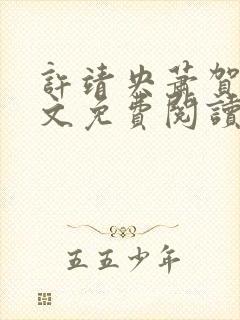 許靖央蕭賀
文免費閱讀
五五少年